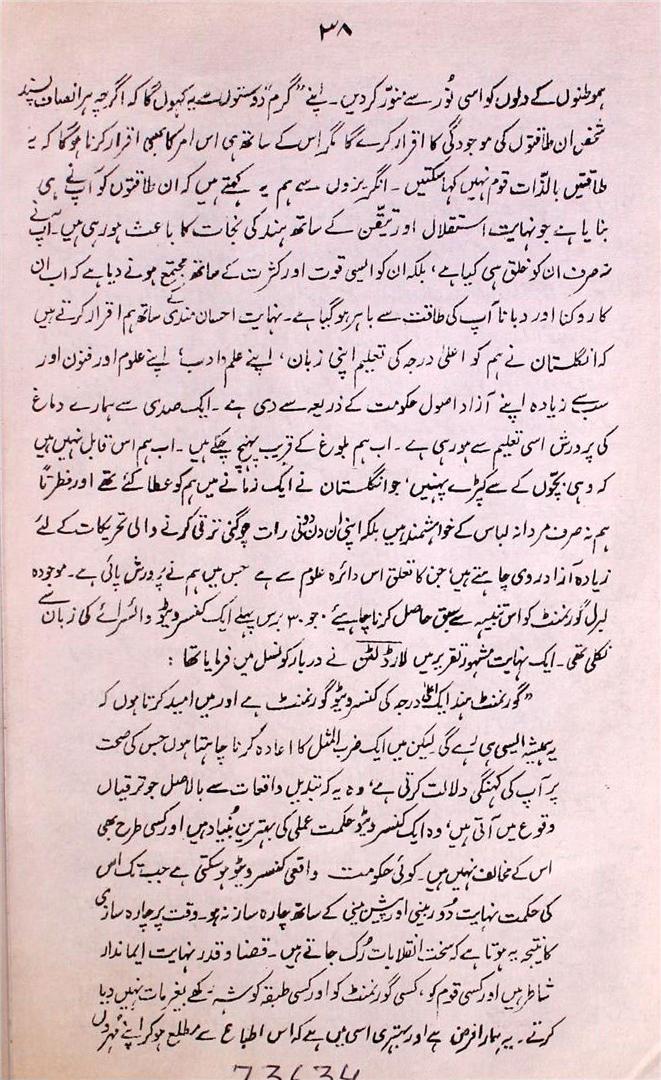 ۳۸
ہموطنوں کے دلوں کو اسی نُور سے منوّر کر دیں۔ اپنے "گرم" دوستوں سے یہ کہوں گا کہ اگرچہ ہر انصاف پسند
شخص ان طاقتوں کی موجودگی کا اقرار کرے گا مگر اس کے ساتھ ہی اس امر کا بھی اقرار کرنا ہوگا کہ یہ
طاقتیں بالذّات قوم نہیں کہا سکتیں۔ انگریزوں سے ہم یہ کہتے ہیں کہ ان طاقتوں کو آپ نے ہی
بنایا ہے جو نہایت استقلال اور تیقّن کے ساتھ ہند کی نجات کا باعث ہو رہی ہیں۔ آپ نے
نہ صرف ان کو خلق ہی کیا ہے، بلکہ ان کو ایسی قوت اور کثرت کے ساتھ مجتمع ہونے دیا ہے کہ اب ان
کا روکنا اور دبانا آپ کی طاقت سے باہر ہو گیا ہے۔ نہایت احسان مندی کے ساتھ ہم اقرار کرتے ہیں
کہ انگلستان نے ہم کو اعلیٰ درجہ کی تعلیم اپنی زبان، اپنے علم ادب، اپنے علوم اور فنون اور
سب سے زیادہ اپنے آزاد اصول حکومت کے ذریعہ سے دی ہے۔ ایک صدی سے ہمارے دماغ
کی پرورش اسی تعلیم سے ہو رہی ہے۔ اب ہم بلوغ کے قریب پہنچ چکے ہیں۔ اب ہم اس قابل نہیں ہیں
کہ وہی بچّوں کے سے کپڑے پہنیں، جو انگلستان نے ایک زمانے میں ہم کو عطا کئے تھے اور فطرتاً
ہم نہ صرف مردانہ لباس کے خواہشمند ہیں بلکہ اپنی ان دن دونی رات چوگنی ترقی کرنے والی تحریکات کے لئے
زیادہ آزادہ روی چاہتے ہیں، جن کا تعلق اس دائرہ علوم سے ہے جس میں ہم نے پرورش پائی ہے۔ موجودہ
لبرل گورنمنٹ کو اس تنبیہ سے سبق حاصل کرنا چاہیئے، جو ۳۰ برس پہلے ایک کنسرویٹو وائسرائے کی زبان سے
نکلی تھی۔ ایک نہایت مشہور تقریر میں لارڈ لٹن نے دربار کونسل میں فرمایا تھا:
"گورنمنٹ ہند ایک اعلیٰ درجہ کی کنسرویٹو گورنمنٹ ہے اور میں امید کرتا ہوں کہ
یہ ہمیشہ ایسی ہی رہے گی لیکن میں ایک ضرب المثل کا اعادہ کرنا چاہتا ہوں جس کی صحت
پر آپ کی کہنگی دلالت کرتی ہے، وہ یہ کہ تبدیل واقعات سے بالاصل جو ترقیاں
وقوع میں آتی ہیں، وہ ایک کنسرویٹو حکمت عملی کی بہترین بُنیاد ہیں اور کسی طرح بھی
اس کے مخالف نہیں ہیں۔ کوئی حکومت واقعی کنسرویٹو ہو سکتی ہے جب تک اس
کی حکمت نہایت دُور بینی اور پیش بینی کے ساتھ چارہ ساز نہ ہو۔ وقت پر چارہ سازی
کا نتیجہ یہ ہوتا ہے کہ سخت انقلابات رُک جاتے ہیں۔ قضا و قدر نہایت ایماندار
شاطر ہیں اور کسی قوم کو، کسی گورنمنٹ کو اور کسی طبقہ کو شہ رکھے بغیر مات نہیں دیا
کرتے۔ یہ ہمارا فرض ہے اور بہتری اسی میں ہے کہ اس اطباع سے مطلع ہو کر اپنے مُہروں
73634